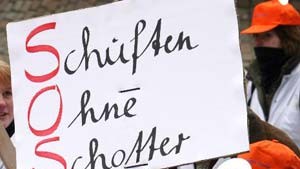 Schuften
Ohne
Schotter